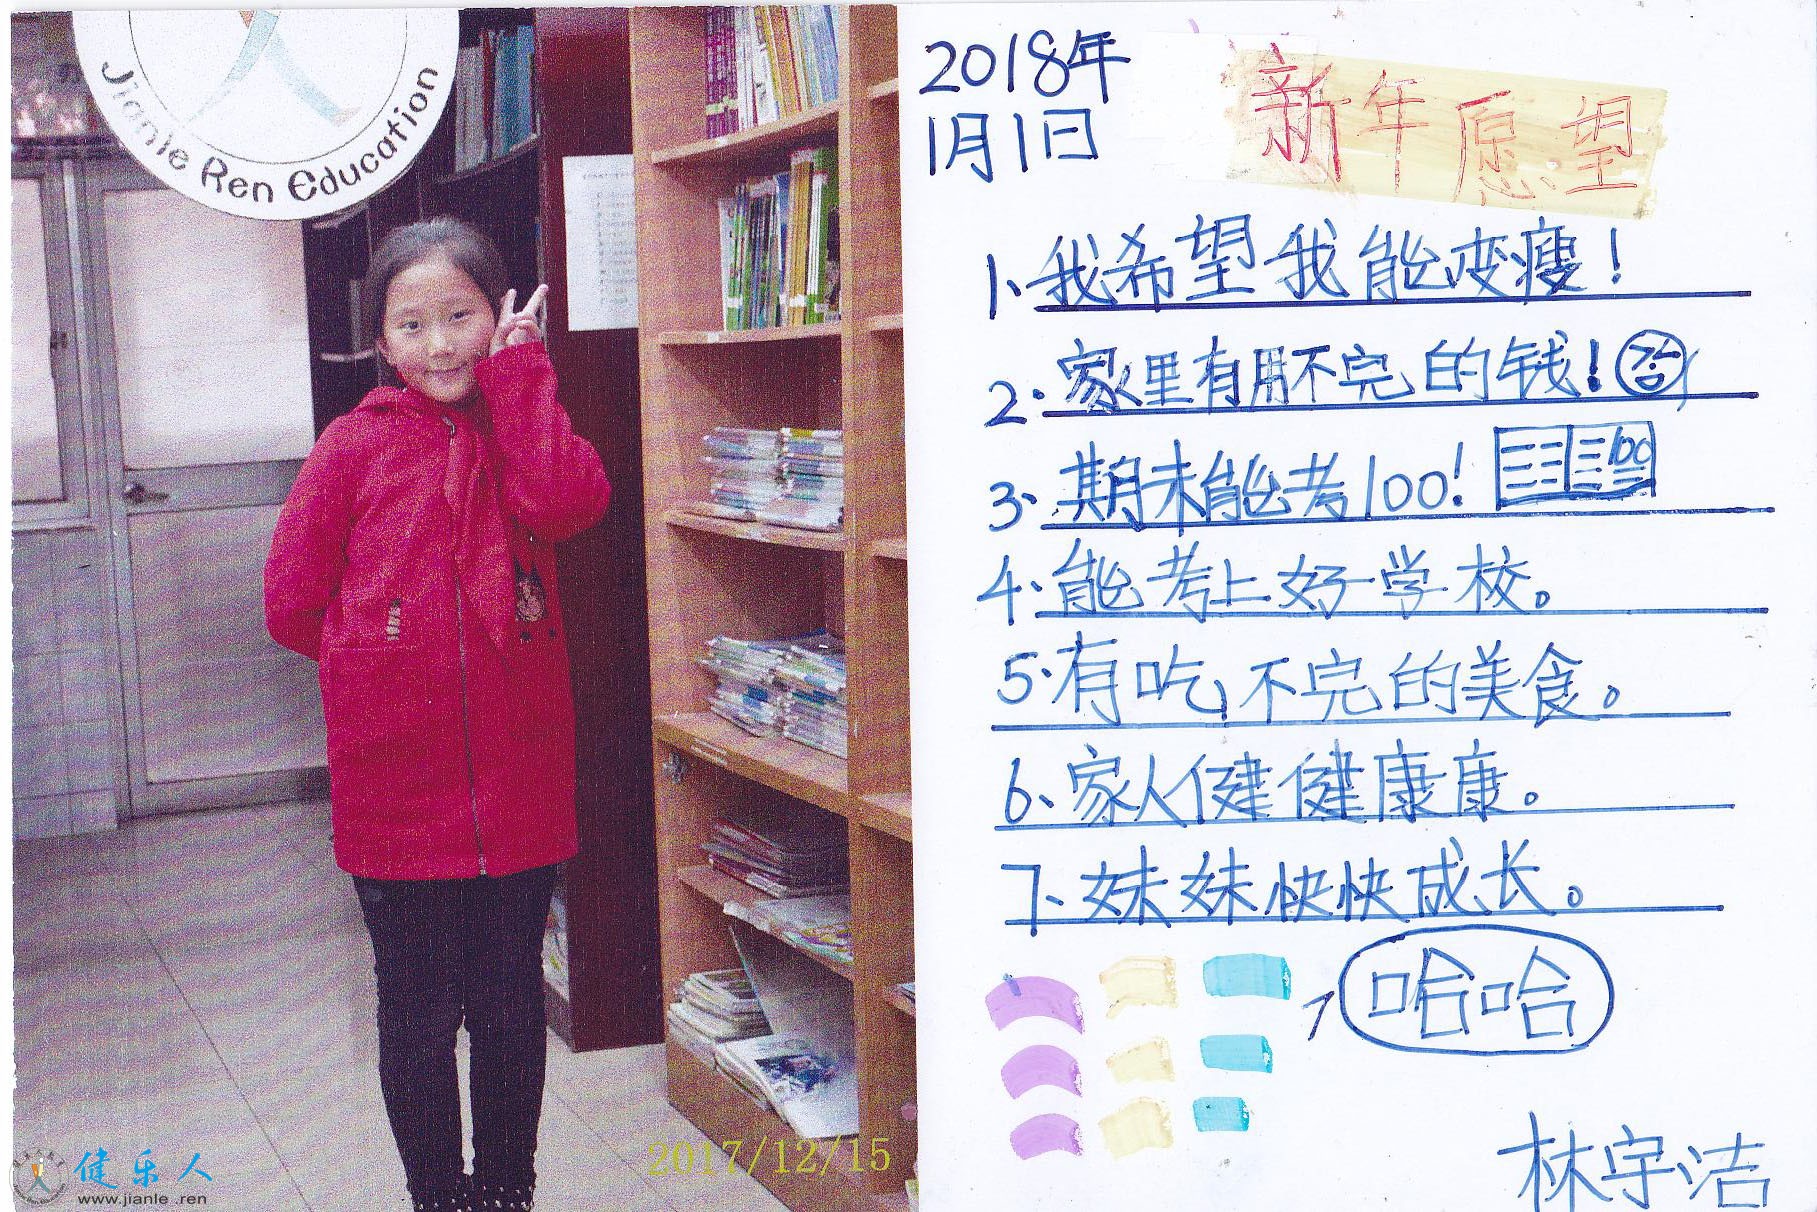 Jianle Ren Education
2018年
1月1日
新年愿望
1、我希望我能变瘦！
2、家里有用不完的钱！
3、期末能考100！
100
4、能考上好学校。
5、有吃不完的美食。
6、家人健健康康。
7、妹妹快快成长。
哈哈
林宇洁
2017/12/15
健乐人
www.jianle.ren